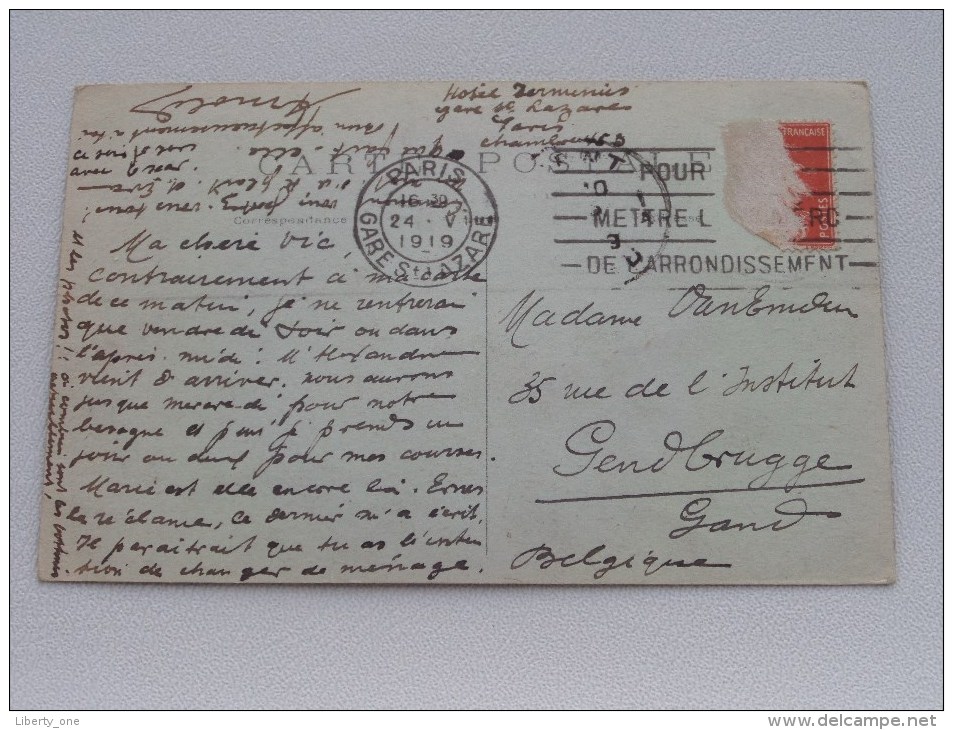 Hotel Terminus
Gare St Lazare
Paris
Chambre 463
CARTE POSTALE
Correspondance
PARIS
16 30
24 · V
1919
GARE St LAZARE
GENT
POUR
METTRE L RC
DE L'ARRONDISSEMENT
FRANÇAISE
POSTES
Ma chere Vic
Contrairement à ma carte
de ce matin, je ne rentrerai
que vendredi soir ou dans
l'après-midi. Mr Alexandre
vient d'arriver. nous aurons
jusque mercredi pour notre
besogne et puis je prends un
jour ou deux pour mes courses.
Marie est elle encore là. Ernest
la réclame, ce dernier m'a écrit.
Il paraîtrait que tu as l'inten
tion de changer de ménage.
Madame VanEmden
35 rue de l'Institut
Gendbrugge
Gand
Belgique
ce soir je sors
avec
Bien affectueusement à toi
Arnold
Liberty_one
www.delcampe.net